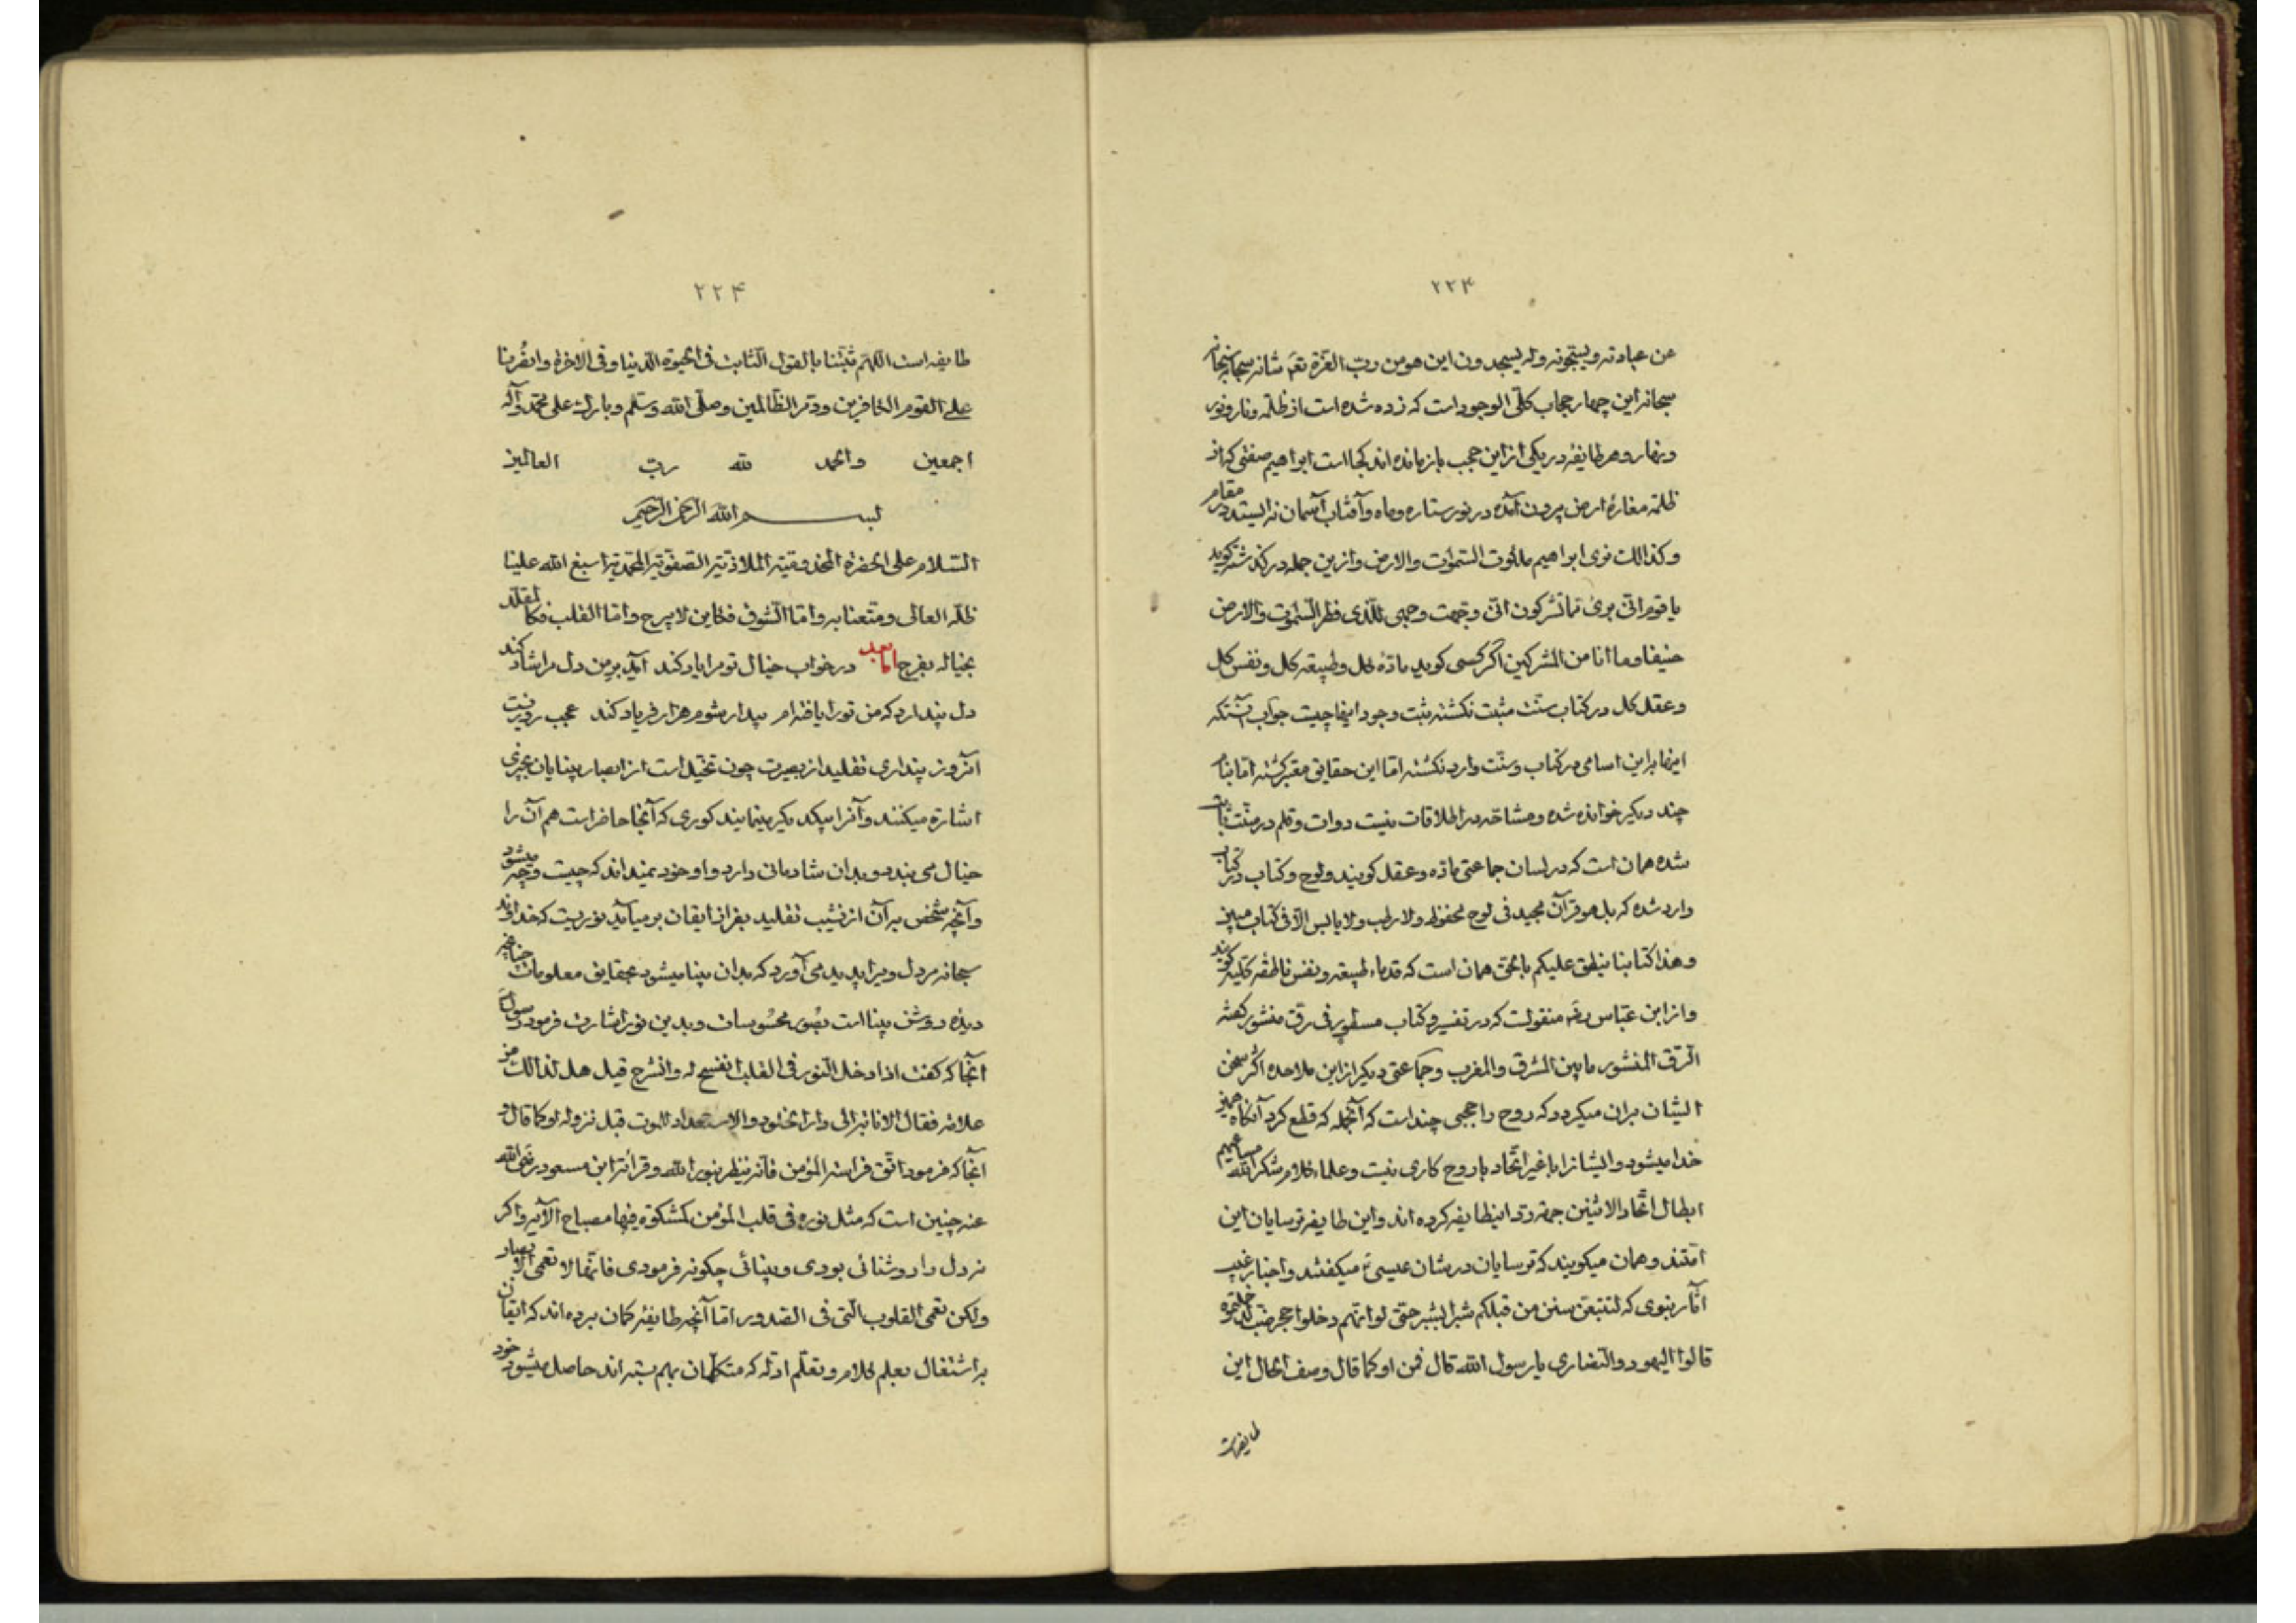 ۲۲۴
عن عبادته ویسبّحونه وله یسجدون این هو من ربّ العزّة تعم شانه سبحانه سبحانه
سبحانه این چهار حجاب کلّی الوجود است که زده شده است از ظلمه و نار و نور
و بهار و هر طایفه در یکی از این حجب باز مانده اند کجا است ابراهیم صفتی که از
ظلمه مغارهٔ ارض بیرون آمده در نور ستاره و ماه و آفتاب آسمان نه ایستد در مقام
وکذالک نری ابراهیم ملکوت السّموات والارض و از این جمله در گذشته گوید
یا قوم انّی بریٔ ممّا تشرکون انّی وجّهت وجهی للّذی فطر السّموات والارض
حنیفا وما انا من المشرکین اگر کسی گوید مادّه کل و طبیعه کل و نفس کل
و عقل کل در کتاب سنّت مثبت نگشته ثبت وجود اینها چیست جواب آنستکه
اینها براین اسامی در کتاب و سنّت وارد نگشته امّا این حقایق معبّر گشته امّا بنام
چند دیگر خوانده شده و مشاحّه در اطلاقات نیست دوات و قلم در سنّت ثابت
شده همان است که در لسان جماعتی مادّه و عقل گویند و لوح و کتاب در کتاب
وارد شده که بل هو قرآن مجید فی لوح محفوظ ولا رطب ولا یابس الّا فی کتاب مبین
وهذا کتابنا ینطق علیکم بالحق همان است که قدماء طبیعه و نفس ناطقه کلیه گویند
و از ابن عبّاس رضه منقولست که در تفسیر و کتاب مسطور فی رق منشور گفته
الرّق المنشور ما بین المشرق والمغرب و جماعتی دیگر از این ملاحده اگر سخن
ایشان بران میگردد که روح را حجبی چند است که آنجمله که قطع کرد آنگاه همین
خدا میشود و ایشانرا با غیر اتّحاد با روح کاری نیست و علماء کلام شکر الله مساعیهم
ابطال اتّحاد الاثنین جهة ردّ اینطایفه کرده اند و این طایفه ترسایان این
امّتند و همان میگویند که ترسایان در شان عیسیٰ میگفتند و اخبار غیب
آثار نبوی که لتتبعن سنن من قبلکم شبرا بشبر حتّی لو انّهم دخلوا جحر ضب لدخلتموه
قالوا الیهود والنّصاری یا رسول الله قال فمن او کما قال وصف الحال این
طایفه است
۲۲۴
طایفه است اللهم ثبّتنا بالقول الثّابت فی الحیوة الدّنیا وفی الاخرة وانصُرنا
علی القوم الکافرین ودمّر الظّالمین وصلّی الله وسلّم وبارک علی محمّد وآله
اجمعین والحمد لله ربّ العالمین
بسم الله الرّحمن الرّحیم
السّلام علی الحضرة المخدومیّة الملاذیّة الصفوتیّة المحمّدیّة اسبغ الله علینا
ظلّه العالی ومتّعنا به وامّا الشّوق فکاین لا یبرح وامّا القلب فکالمقلّد
بخیاله یفرح امّا بعد در خواب خیال تو مرا یاد کند آید بر من دل مرا شاد کند
دل پندارد که من تورا یافته ام بیدار شوم هزار فریاد کند عجب روزیست
آنروز پنداری تقلید از بصیرت چون تخیّل است از ابصار بینایان بچیزی
اشاره میکنند و آنرا بیکدیگر مینمایند کوری که آنجا حاضر است هم آن را
خیال می بندد و بدان شادمانی دارد و او خود نمیداند که چیست و چه میشود
و آنچه شخص بر آن از نشیب تقلید بفراز ایقان بر میآید نوریست که خداوند
سبحانه در دل ویرا پدید می آورد که بدان بینا میشود بحقایق معلومات چنانچه
دیده روشن بینا است بصُور محسُوسات و بدین نور اشارت فرمود رسول ص
آنجا که گفت اذا دخل النّور فی القلب انفسح له وانشرح قیل هل لذالک من
علامه فقال الانابه الی دار الخلود والاستعداد للموت قبل نزوله او کما قال و
آنجا که فرمود اتّق فراسة المؤمن فانّه ینظر بنور الله و قرائة ابن مسعود رضی الله
عنه چنین است که مثل نوره فی قلب المؤمن کمشکوة فیها مصباح الآیه و اگر
نه دل را روشنائی بودی و بینائی چگونه فرمودی فانّها لا تعمی الابصار
ولکن تعمی القلوب الّتی فی الصّدور امّا آنچه طایفهٔ گمان برده اند که ایقان
براشتغال بعلم کلام و تعلّم ادلّه که متکلّمان بهم بسته اند حاصل میشود خود